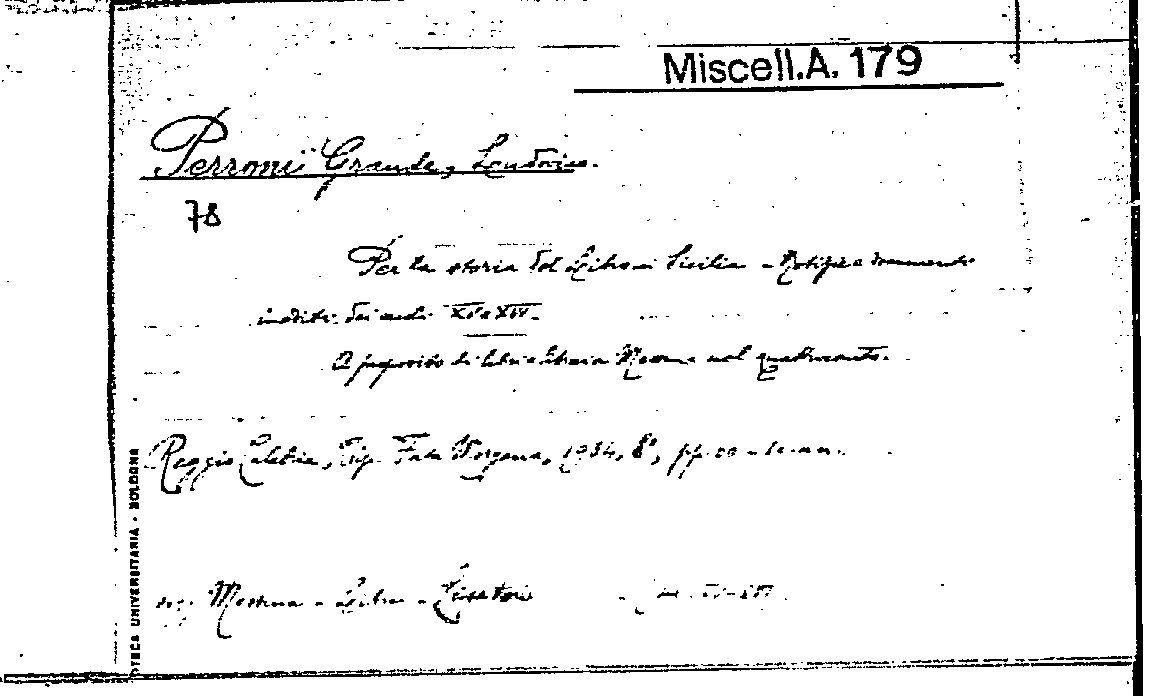 Miscell.A. 179
Perroni Grande, Ludovico.
78
Per la storia del Libro in Sicilia - Notizie e documenti
inediti dei secoli XV e XVI.
A proposito di libri e librai a Messina nel quattrocento.
Reggio Calabria, Tip. Fata Morgana, 1934, 8°, pp.
sog. Messina - Libri - Librai
TECA UNIVERSITARIA - BOLOGNA